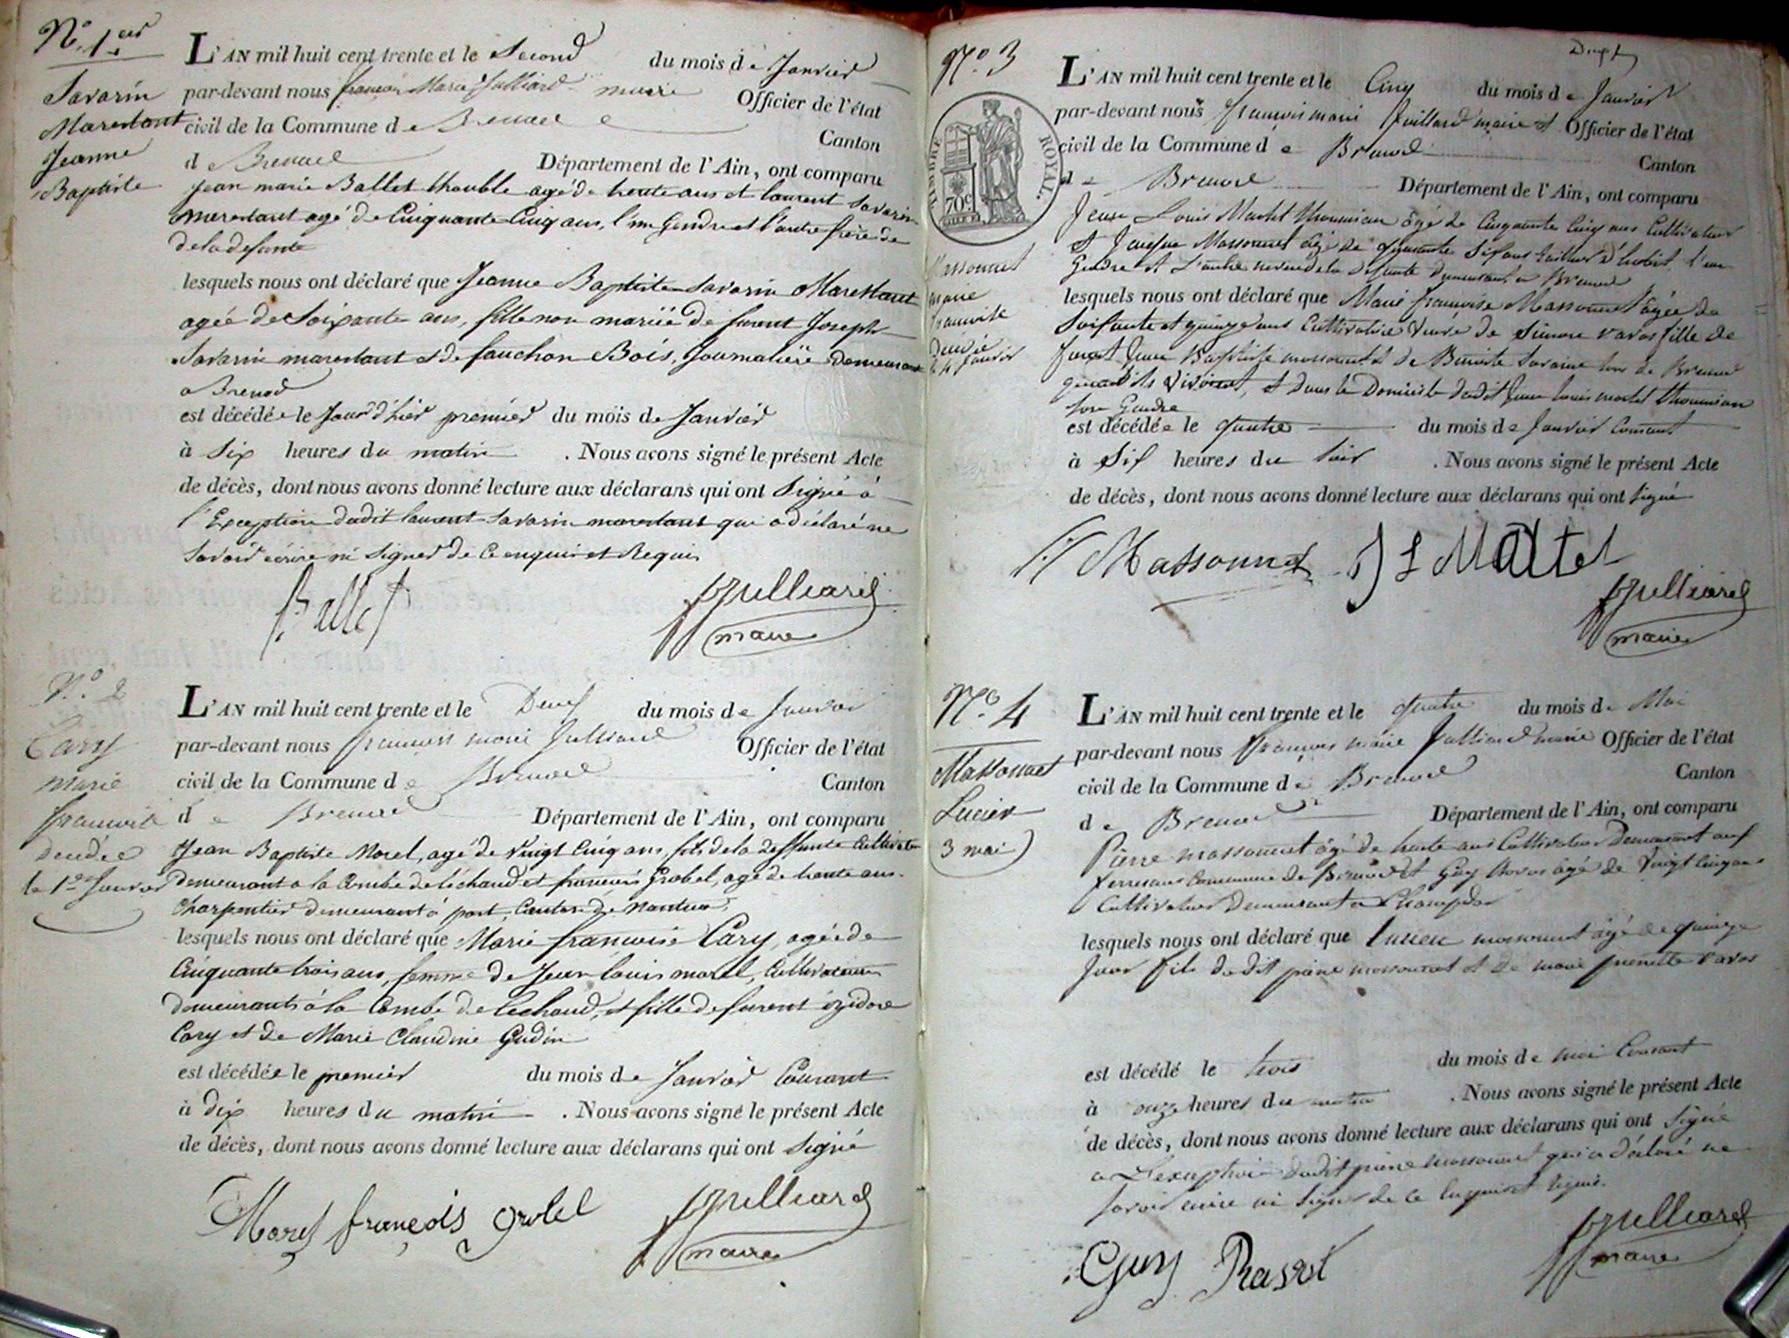 N.º 1.er
Savarin
Marestant
Jeanne
Baptiste
L'AN mil huit cent trente et le Second du mois de Janvier
par-devant nous françois Marie Julliard maire Officier de l'état
civil de la Commune de Brenod Canton
de Brenod Département de l'Ain, ont comparu
Jean marie Ballet thouble agé de trente ans et laurent Savarin
marestant agé de Cinquante Cinq ans, l'un Gendre et l'autre frère de
de la defunte
lesquels nous ont déclaré que Jeanne Baptiste Savarin Marestant
agée de Soixante ans, fille non mariée de furent Joseph
Savarin marestant et de fauchon Bois, Journalière demeurant
a Brenod
est décédée le Jour d'hier premier du mois de Janvier
à Six heures du matin . Nous avons signé le présent Acte
de décès, dont nous avons donné lecture aux déclarans qui ont Signé à
l'Exception dudit laurent Savarin marestant qui a déclaré ne
Savoir écrire ni Signer de Ce enquis et Requis
Ballet
Julliard
maire
N.º 2
Cary
marie
françoise
décédée
le 1er Janvier
L'AN mil huit cent trente et le Deux du mois de Janvier
par-devant nous françois marie Julliard Officier de l'état
civil de la Commune de Brenod Canton
de Brenod Département de l'Ain, ont comparu
Jean Baptiste Morel, agé de Vingt Cinq ans, fils de la deffunte Cultivateur
demeurant a la Combe de léchaud et françois Grobel, age de trente ans
Charpentier demeurant à port, Canton de Nantua,
lesquels nous ont déclaré que Marie françoise Cary, agée de
Cinquante trois ans, femme de Jean louis morel, Cultivateur
demeurants à la Combe de Lechaud, et fille de furent izidore
Cary et de Marie Claudine Gudin
est décédée le premier du mois de Janvier Courant
à dix heures du matin . Nous avons signé le présent Acte
de décès, dont nous avons donné lecture aux déclarans qui ont Signé
Morel françois grobel
Julliard
maire
N.º 3
TIMBRE ROYAL.
70c
Massonnet
marie
françoise
décédée
le 4 Janvier
L'AN mil huit cent trente et le Cinq du mois de Janvier
par-devant nous françois marie Juillard maire et Officier de l'état
civil de la Commune de Brenod Canton
de Brenod Département de l'Ain, ont comparu
Jean Louis Martel thoumian âgé de Cinquante Cinq ans Cultivateur
et Jacques Massonnet âgé de quarante Six ans tailleur d'habits l'un
Gendre et L'autre neveu de la defunte demeurant a Brenod
lesquels nous ont déclaré que Marie françoise Massonnet agée de
Soixante et quinze ans Cultivatrice Veuve de Simon ravos fille de
furent Jean Baptiste massonnet et de Benoite Savarin tous de Brenod
quand ils Vivoient, et dans le Domicile dudit Jean louis martel thoumian
son Gendre
est décédée le quatre du mois de Janvier Courant
à Six heures du Soir . Nous avons signé le présent Acte
de décès, dont nous avons donné lecture aux déclarans qui ont Signé
Massonnet J L Martel
Julliard
maire
N.º 4
Massonnet
Lucien
3 mai
L'AN mil huit cent trente et le quatre du mois de Mai
par-devant nous françois marie Julliard maire Officier de l'état
civil de la Commune de Brenod Canton
de Brenod Département de l'Ain, ont comparu
Pierre massonnet âgé de trente ans Cultivateur Demeurant aux
Commune de Brenod et Guy âgé de Vingt Cinq ans
Cultivateur Demeurant a Champdor
lesquels nous ont déclaré que Lucien massonnet âgé de quinze
Jour fils dudit pierre massonnet et de marie ravos
est décédé le trois du mois de mai Courant
à onze heures du matin . Nous avons signé le présent Acte
de décès, dont nous avons donné lecture aux déclarans qui ont Signé
a L'exception dudit pierre massonnet qui a déclaré ne
Savoir écrire ni Signer de Ce Enquis et Requis.
Guy
Julliard
maire